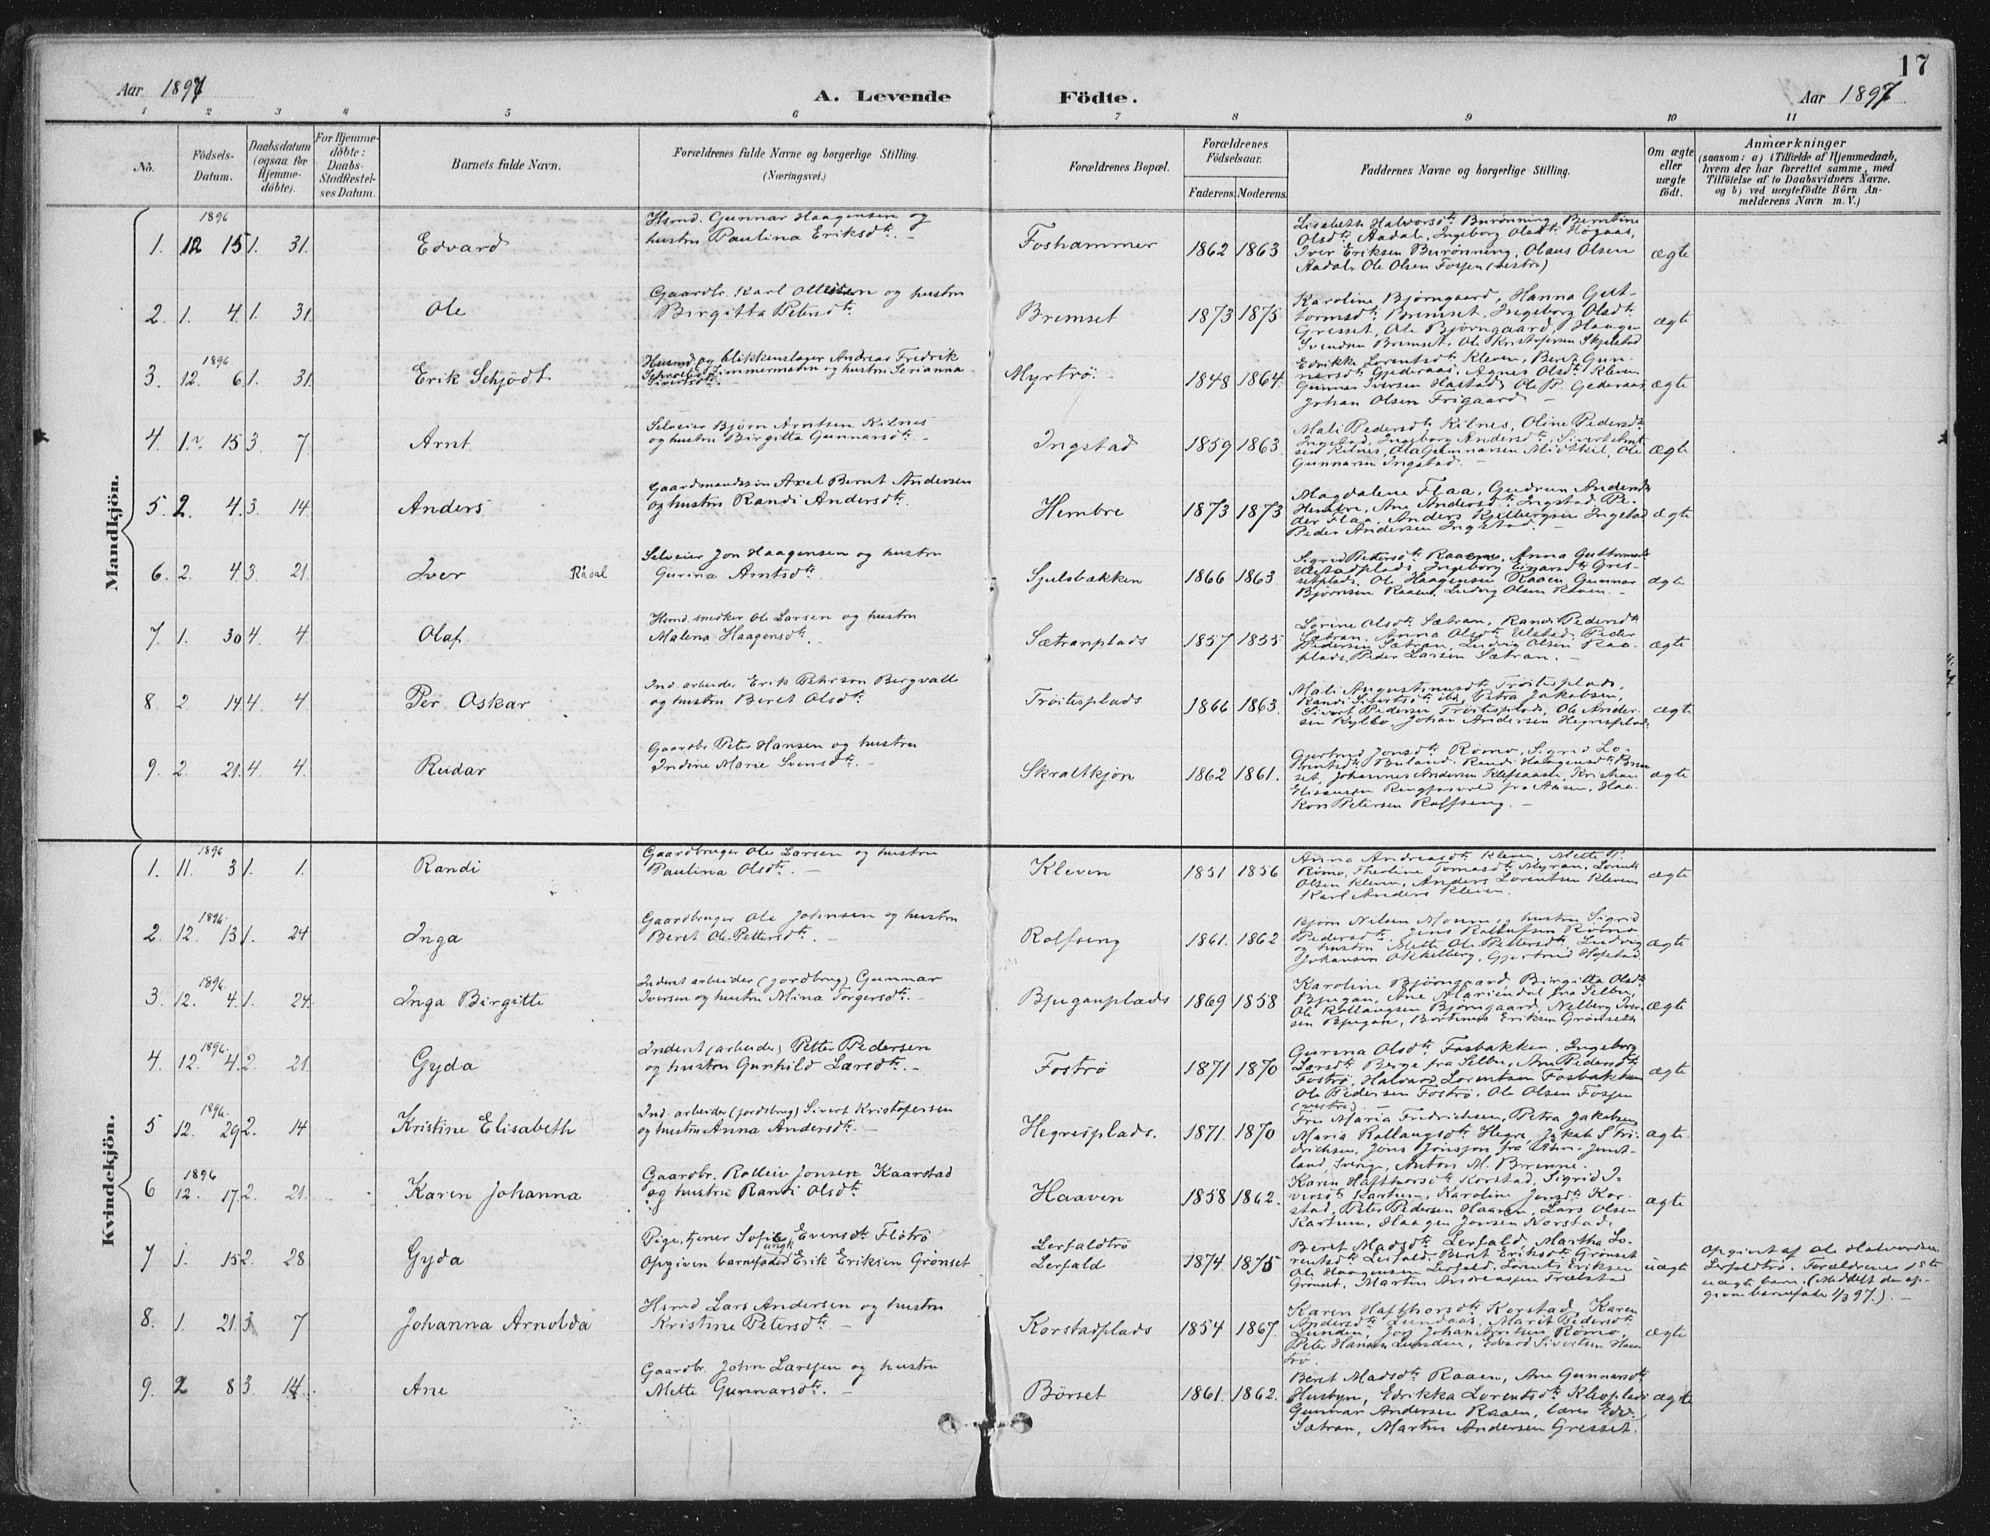 17
Aar 1897 A. Levende Födte. Aar 1897
1 2 3 4 5 6 7 8 9 10 11
No. Födsels-Datum. Daabsdatum (ogsaa for Hjemme-döbte). For Hjemme-döbte: Daabs-Stadfestel-ses Datum. Barnets fulde Navn. Forældrenes fulde Navne og borgerlige Stilling. (Næringsvei.) Forældrenes Bopæl. Forældrenes Födselsaar. Faderens. Moderens. Faddernes Navne og borgerlige Stilling. Om ægte eller uægte födt. Anmærkninger (saasom: a) i Tilfælde af Hjemmedaab, hvem der har forrettet samme, med Tilföielse af to Daabsvidners Navne, og b) ved uægtefödte Börn An-melderens Navn m. V.)
Mandkjön.
1896
1. 12 15 1. 31. Edvard
Hsmd. Gunnar Haagensen og
hustru Paulina Eriksdtr. –
Foshammer 1862 1863
Lisabeth Halvorsdtr. Burönning, Berntine
Olsdtr. Aadal, Ingeborg Olsdtr. Högaas,
Iver Eriksen Burönning, Olaus Olsen
Aadal, Ole Olsen Fosjen (vestre)
ægte
2. 1. 4. 1. 31. Ole
Gaardbr. Karl Ollesen og hustru
Birgitta Petersdtr.
Bremset 1873 1875
Karoline Bjørngaard, Hanna Gut-
tormsdtr. Bremset, Ingeborg Olsdtr.
Gresset, Ole Bjørngaard, Haagen
Svendsen Bremset, Ole Kristofersen Skjelstad
ægte
1896
3. 12. 6 1. 31. Erik Schjödt
Husmd. og blikkenslager Andreas Fredrik
Zimmermann og hustru Serianna
Sivertsdtr.
Myrtrö. – 1848 1864.
Edrikke Lorentsdtr. Kleven, Beret Gun-
narsdtr. Gjederaas, Agnes Olsdtr. Kleven
Gunnar Iversen Hastad, Ole P. Gederaas,
Johan Olsen Frigaard. –
ægte
4. 1. 15 3 7 Arnt
Selveier Björn Arntsen Kilnes
og hustru Birgitta Gunnarsdtr. –
Ingstad 1859 1863
Mali Pedersdtr. Kilnes, Oline Pedersdtr.
Ingstad, Ingeborg Andersdtr., Sivert Arnt-
sen Kilnes, Ola Gunnarsen Midtkil, Ole
Gunnarsen Ingstad. –
ægte
5. 2. 4. 3. 14. Anders
Gaardmandssön Axel Bernt Andersen
og hustru Randi Andersdtr.
Hembre 1873 1873
Magdalene Flaa, Gudrun Andersdtr.
Hembre, Ane Andersdtr. Ingstad, Pe-
der Flaa, Anders Kjelbergsen Ingstad
Peder Andersen Ingstad. –
ægte
6. 2. 4. 3. 21. Iver Råsal
Selveier Jon Haagensen og hustru
Gurina Arntsdtr.
Sjulsbakken 1866 1863
Sigrid Petersdtr. Raaen, Anna Guttormsdtr.
Ingeborg Einarsdtr. Gres-
setplads, Ole Haagensen Raaen, Gunnar
Björnsen Raaen, Ludvig Olsen Raaen. –
ægte
7. 1. 30 4. 4. Olaf
Hsmd. snedker Ole Larsen og hustru
Malena Haagensdtr.
Sætranplads 1857 1855
Lorine Olsdtr. Sætran, Randi Pedersdtr.
Sætran, Anna Olsdtr. Ulstad, Peder
Pedersen Sætran, Ludvig Olsen Raa-
plads, Peder Larsen Sætran. –
ægte
8. 2 14 4. 4. Per Oskar
Ind. arbeider Erik Pehrson Bergvall
og hustru Beret Olsdtr.
Tröitesplads 1866 1863.
Mali Augustinusdtr. Tröitesplads,
Randi Sivertsdtr. ibd., Petra Jakobsen,
Sivert Pedersen Tröitesplads, Ole Ander-
sen Kylbo, Johan Andersen Hegresplads.
ægte
9. 2. 21. 4. 4. Reidar
Gaardbr. Peter Hansen og hustru
Indine Marie Svensdtr. –
Skraltkjön 1862 1861.
Gjertrud Jonsdtr. Römo, Sigrid Lo-
rentsdtr. Buland, Randi Haagensdtr. Brem-
set, Johannes Andersen Klefsaas, Kristian
fra Aasen, Haa-
kon Petersen Rolfseng. –
ægte
Kvindekjön.
1896
1. 11. 3 1. 1. Randi
Gaardbruger Ole Larsen og hustru
Paulina Olsdtr. –
Kleven 1851 1856
Anna Andreasdtr. Kleven, Mette P.
Römo, Theoline Tomasdtr. Myran, Lorents
Olsen Kleven, Anders Lorentsen Kleven
Karl Anders Kleven.
ægte
1896.
2. 12. 13 1. 24 Inga
Gaardbruger Ole Johnsen og hustru
Beret Ole Pettersdtr. –
Rolfseng 1861. 1862
Björn Nilsen Moum og hustru Sigrid
Pedersdtr., Jens Rollafsen Römo
og hustru Mette Ole Pettersdtr., Ludvig
Johansen Okkelberg, Gjertrud Hofstad.
ægte
1896.
3. 12. 4. 1. 24. Inga Birgitte
Inderst arbeider (jordbrug) Gunnar
Iversen og hustru Mina Torgersdtr. –
Bjuganplads 1869 1858
Karoline Bjørngaard, Birgitta Olsdtr.
Bjugan, Ane Mariendal fra Selbu,
Ole Rollaugsen Bjørngaard, Nelberg Iver-
sen Bjugan, Bortinus Eriksen Grönseth
ægte
1896.
4. 12. 4. 2. 21. Gyda
Inderst (arbeider) Petter Pedersen
og hustru Gunhild Larsdtr. –
Foströ 1871 1870
Gurina Olsdtr. Fosbakken, Ingeborg
Larsdtr. Berge fra Selbu, Ane Pedersdtr.
Foströ, Halvard Lorentsen Fosbakken
Ole Pedersen Foströ, Ole Olsen Fosjen
(vestre). –
ægte
1896.
5 12. 29 2. 14 Kristine Elisabeth
Ind. arbeider (jordbrug) Sivert Kristofersen
og hustru Anna Andersdtr. –
Hegresplads. 1871. 1870
Fru Maria Fredrichsen, Petra Jakobsen,
Maria Rollaugsdtr. Hegre, Jakob S Fri-
drichsen, Jöns Jönsson fra Åhn, Jemt-
land, Sverige, Anton M. Brenne.
ægte.
1896
6 12. 17 2. 21. Karen Johanna
Gaardbr. Rolleiv Jonsen Kaarstad
og hustru Randi Olsdtr.
Haaven 1858 1862.
Karen Hafthorsdtr. Korstad, Sigrid I-
versdtr. Kartum, Karoline Jonsdtr. Kor-
stad, Peter Pedersen Haaven, Lars Olsen
Kartum, Haagen Jonsen Korstad.
ægte
7 1. 15 2. 28 Gyda
Pige, tjener Sofie Evensdtr. Flötrö
Opgiven barnefader ungk. Erik Eriksen Grönset
Lerfaldtrö
Lerfald
1874 1875
Beret Madsdtr. Lerfald, Martha Lo-
rentsdtr. Lerfald, Beret Eriksdtr. Grönset
Ole Haagensen Lerfald, Lorents Eriksen
Grönset, Martin Andreassen Trælstad
uægte
Opgivet af Ole Halvardsen
Lerfaldtrö. Forældrenes 1ste
uægte barn. (Meddelt den op-
givne barnefader 1/3 97.). –
8. 1. 21. 3 7 Johanna Arnolda
Hsmd Lars Andersen og hustru
Kristine Petersdtr. –
Korstadplads 1854 1867.
Karen Hafthorsdtr. Korstad, Karen
Andersdtr. Lundaas, Marit Pedersdtr.
Lunden, Römo,
Peter Hansen Lunden, Edvard Sivertsen
trö.
ægte
9. 2 8 3. 14. Ane
Gaardbr. John Larssen og hustru
Mette Gunnarsdtr. –
Börset 1861. 1862.
Beret Madsdtr. Raaen, Ane Gunnarsdtr.
Husbyn, Edrikka Lorentsdtr. Kleplads
Gunnar Andersen Raaen, lærer Edv.
Sætran, Martin Andersen Gresset.
ægte